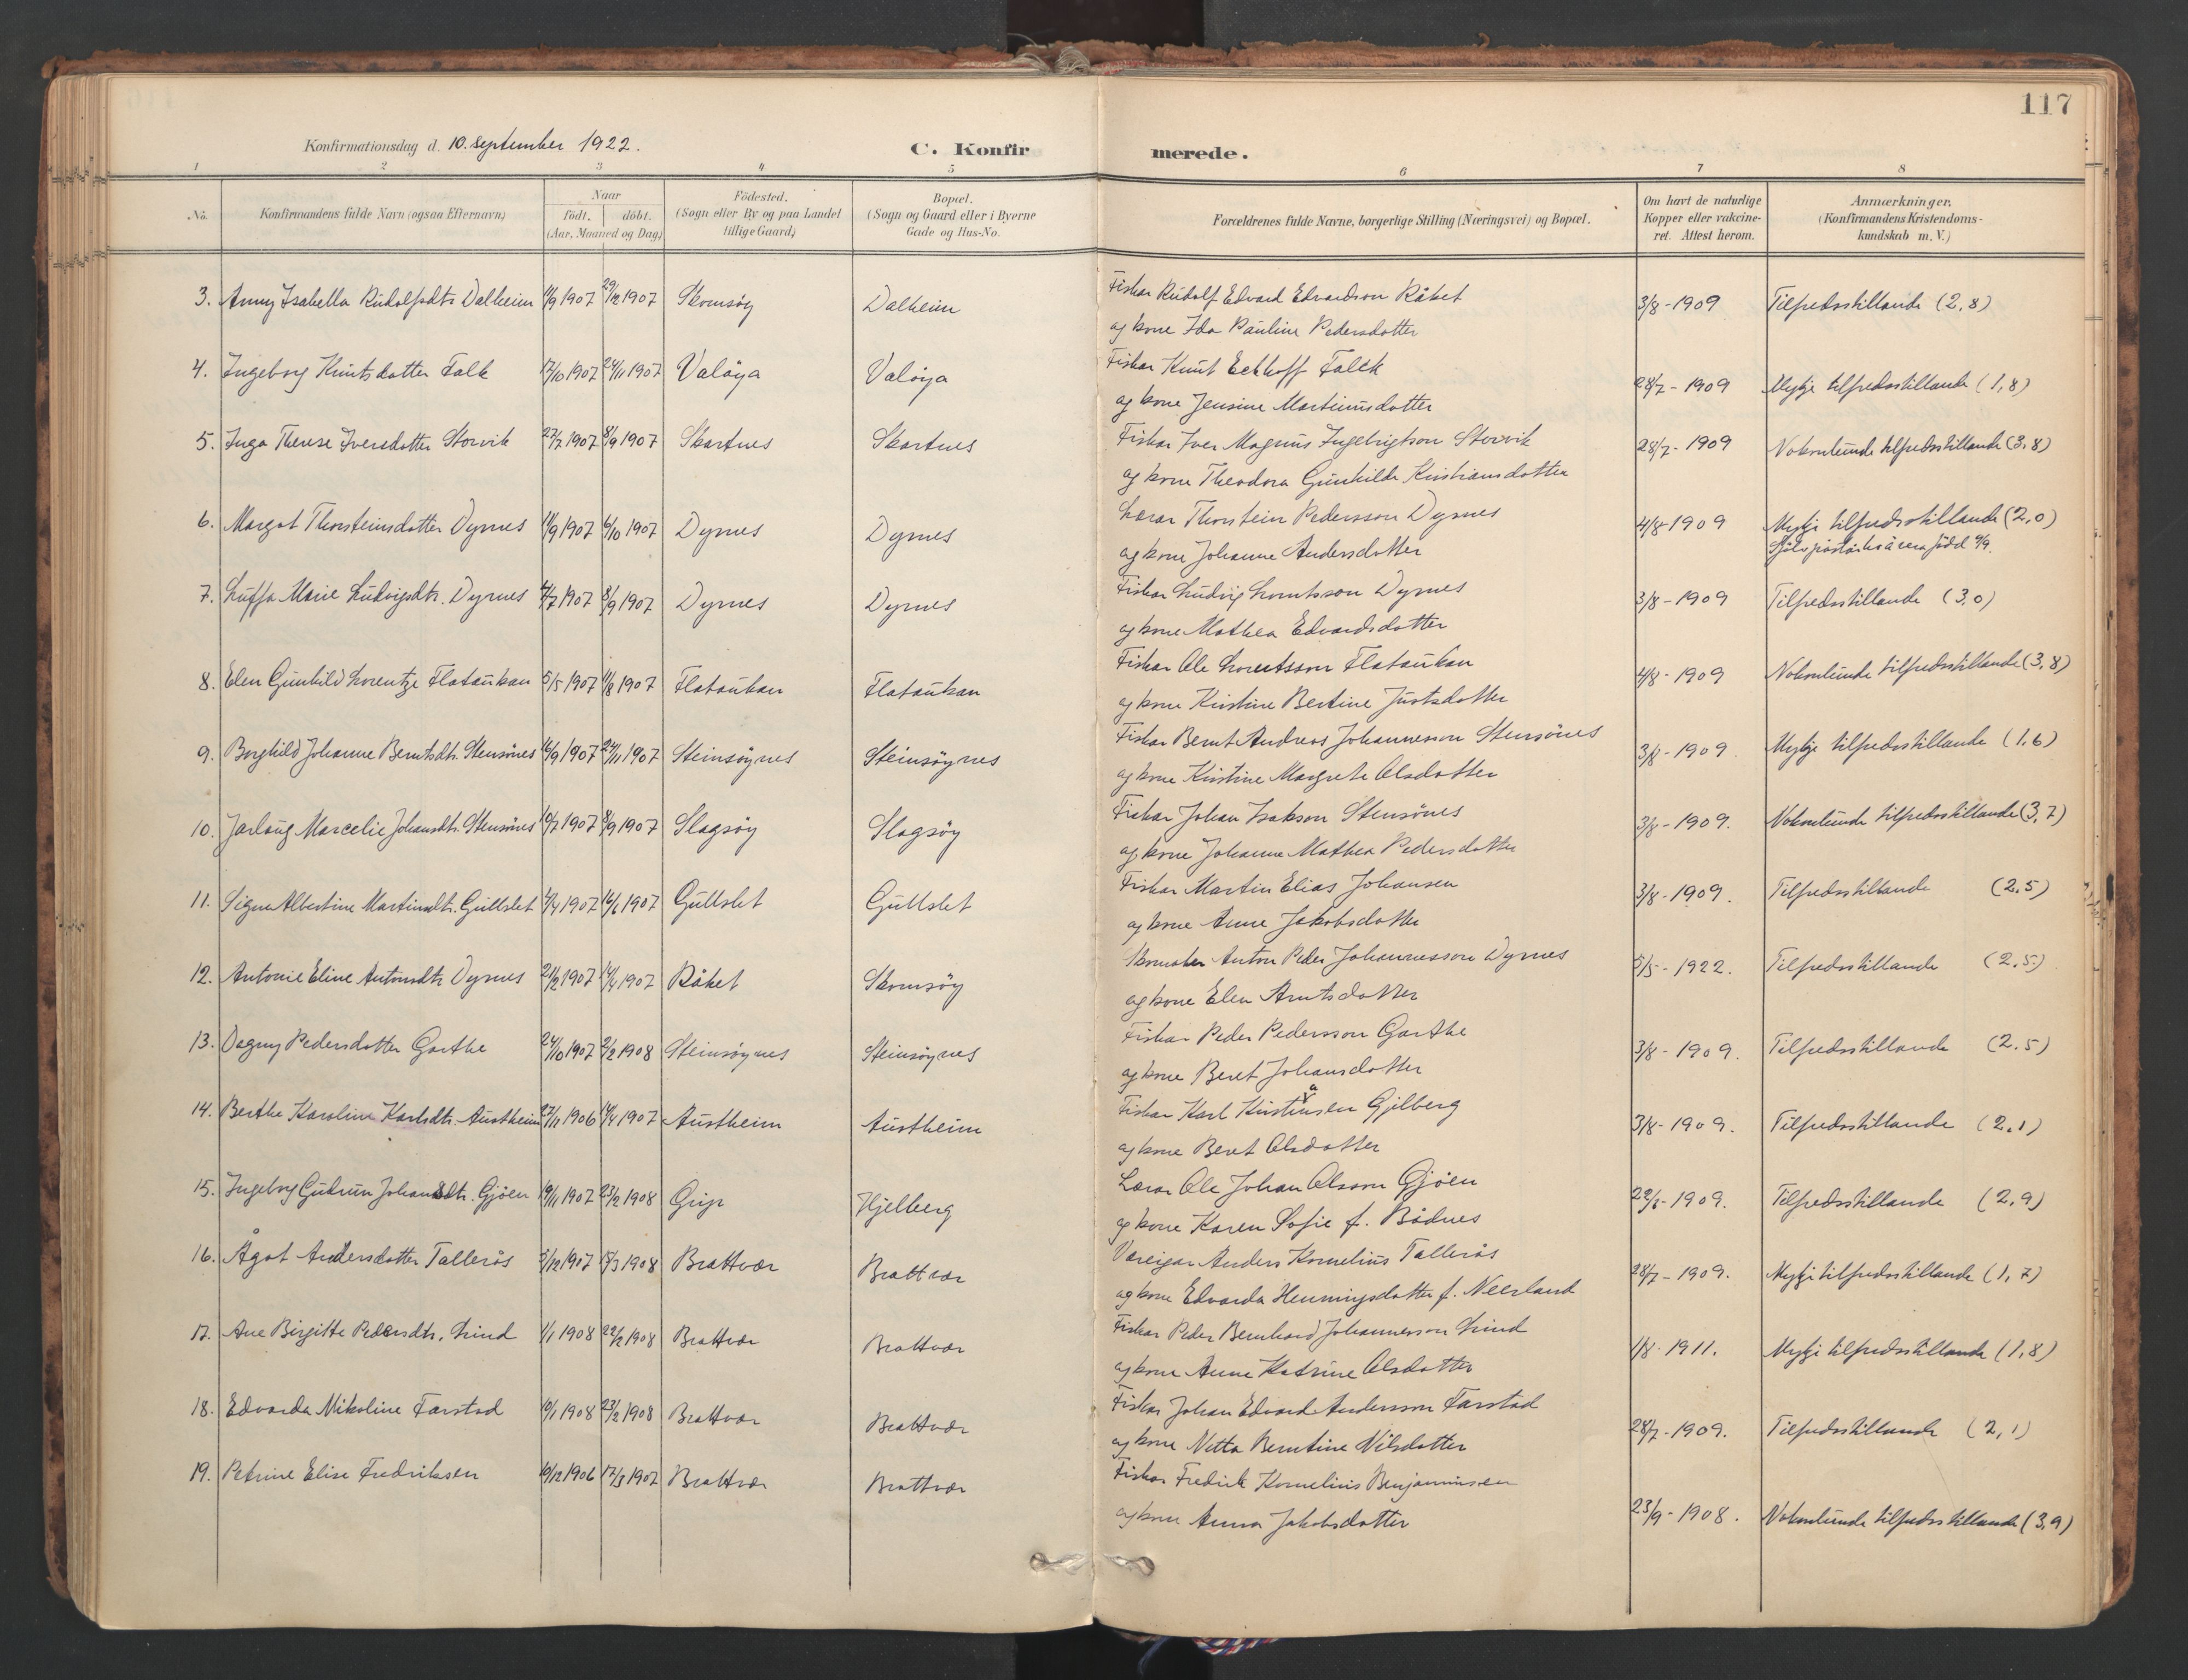 117
Konfirmationsdag d. 10. september 1922.
C. Konfirmerede.
1 2 3 4 5 6 7 8
No.
Konfirmandens fulde Navn (ogsaa Efternavn)
Naar
födt. döbt.
(Aar, Maaned og Dag)
Födested.
(Sogn eller By og paa Landet
tillige Gaard)
Bopæl.
(Sogn og Gaard eller i Byerne
Gade og Hus-No.
Forældrenes fulde Navne, borgerlige Stilling (Næringsvei) og Bopæl.
Om havt de naturlige
Kopper eller vakcine-
ret. Attest herom.
Anmærkninger,
(Konfirmandens Kristendoms-
kundskab m. V.)
3. Anny Isabella Rudolfsdtr Dalheim 11/9 1907 29/12 1907 Skomsöy Dalheim Fiskar Rudolf Edvard Edvardson Råket 3/8 - 1909 Tilfredsstillande (2,8)
og kone Ida Pauline Pedersdotter
4. Ingeborg Knutsdotter Falk 17/10 1907 24/11 1907 Valöya Valöya Fiskar Knut Eckhoff Falck 28/7 - 1909 Mykje tilfredsstillande (1,8)
og kone Jensine Martinusdotter
5. Inga Therese Iversdotter Storvik 27/7 1907 8/9 1907 Skartnes Skartnes Fiskar Iver Magnus Ingebrigtson Storvik 28/7 - 1909 Nokonleunde tilfredsstillande (3,8)
og kone Theodora Gunhilde Kristiansdotter
6. Margot Thorsteinsdotter Dyrnes 11/9 1907 6/10 1907 Dyrnes Dyrnes Lærar Thorstein Pedersson Dyrnes 4/8 1909 Mykje tilfredsstillande (2,0)
og kone Johanne Andersdotter
7. Luffa Marie Ludvigsdtr. Dyrnes 4/7 1907 8/9 1907 Dyrnes Dyrnes Fiskar Ludvig Lorntsson Dyrnes 3/8 - 1909 Tilfredsstillande (3,0)
og kone Mathea Edvardsdotter
8. Elen Gunhild Lorentze Flataukan 5/5 1907 11/8 1907 Flataukan Flataukan Fiskar Ole Lorentsson Flataukan 4/8 - 1909 Nokonleunde tilfredsstillande (3,8)
og kone Kirstine Bertine Justsdotter
9. Borghild Johanne Berntsdtr. Stensönes 16/9 1907 24/11 1907 Steinsöynes Steinsöynes Fiskar Bernt Andreas Johannesson Stensönes 3/8 - 1909. Mykje tilfredsstillande (1,6)
og kone Kirstine Margrete Olsdotter
10. Jarlaug Marcelie Johansdtr. Stensönes 10/7 1907 8/9 1907 Slagsöy Slagsöy Fiskar Johan Isakson Stensönes 3/8 - 1909. Nokonleunde tilfredsstillande (3,7)
og kone Johanne Mathea Pedersdotter
11. Signe Albertine Martinsdtr. Gullslet 1907 16/6 1907 Gullslet Gullslet Fiskar Martin Elias Johansen 3/8 - 1909. Tilfredsstillande (2,5)
og kone Anne Jakobsdotter
12. Antonie Eline Antonsdtr Dyrnes 21/2 1907 14/4 1907 Råket Skomsöy Skomaker Anton Peder Johannesson Dyrnes 5/5 - 1922. Tilfredsstillande (2,5)
og kone Elen Arntsdotter
13. Dagny Pedersdotter Garthe 24/10 1907 2/2 1908 Steinsöynes Steinsöynes Fiskar Peder Pedersson Garthe 3/8 - 1909. Tilfredsstillande (2.5)
og kone Beret Johansdotter
14. Berthe Karoline Karlsdtr. Austheim 27/11 1906 14/4 1907 Austheim Austheim Fiskar Karl Kristiansen Gjilberg 3/8 - 1909. Tilfredsstillande (2,1)
og kone Beret Olsdotter
15. Ingeborg Gudrun Johansdtr. Gjöen 19/11 1907 23/2 1908 Grip Hjelberg Lærar Ole Johan Olsson Gjöen 1909. Tilfredsstillande (2,9)
og kone Karen Sofie f. Bådnes
16. Ågot Andersdotter Tallerås 5/12 1907 15/3 1908 Brattvær Brattvær Væreigar Anders Kornelius Tallerås 28/7 - 1909. Mykje tilfredsstillande (1,7)
og kone Edvarda Henningsdotter f. Neerland
17. Ane Birgitte Pedersdtr. Lind 1/1 1908 22/2 1908 Brattvær Brattvær Fiskar Peder Bernhard Johannesson Lind 1/8 - 1911. Mykje tilfredsstillande (1,8)
og kone Anne Katrine Olsdotter
18. Edvarda Nikoline Farstad 10/1 1908 23/2 1908 Brattvær Brattvær Fiskar Johan Edvard Anderson Farstad 28/7 - 1909. Tilfredsstillande (2,1)
og kone Netta Berntine Nilsdotter
19. Petrine Elise Fredriksen 10/12 1906 17/3 1907 Brattvær Brattvær Fiskar Fredrik Kornelius Benjaminsen 23/9 - 1908. Nokonleunde tilfredsstillande (3,9)
og kone Anna Jakobsdotter